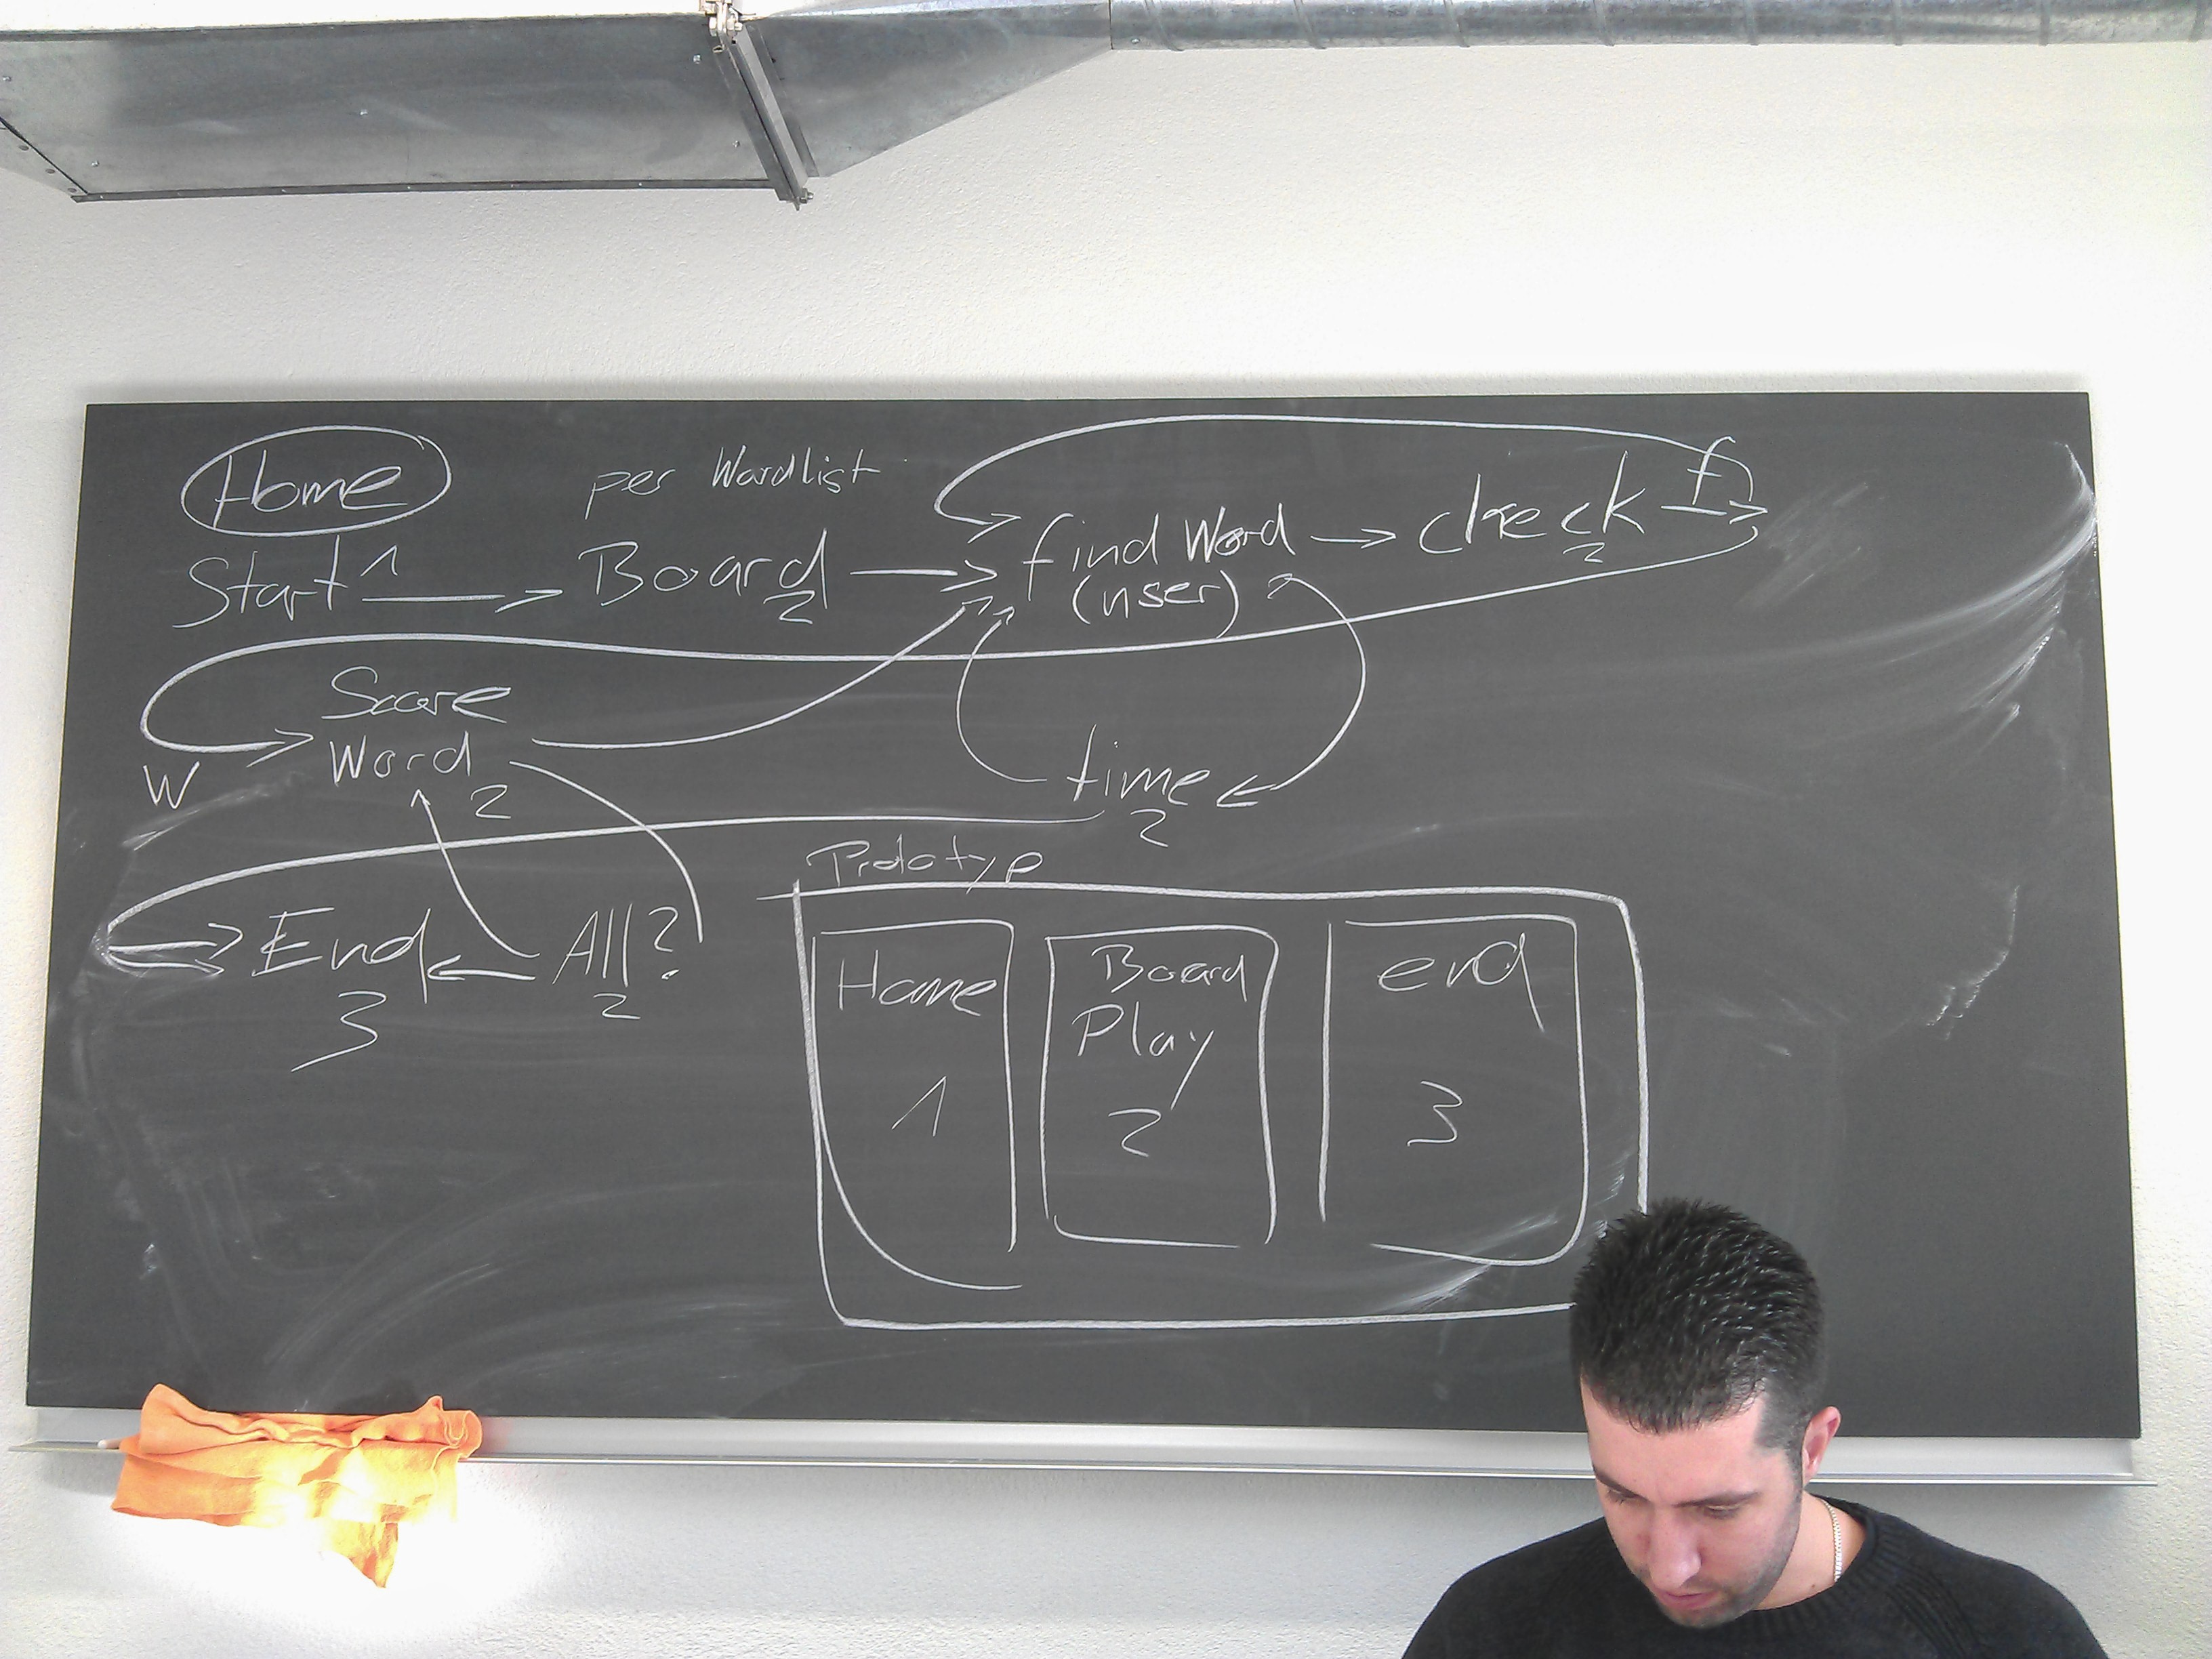 Home
per Wordlist
Start 1 → Board 2 → find Word (user) → check 2 → f
Score
Word
2
W
time
2
End ← All?
3
2
Prototype
Home
1
Board
Play
2
end
3